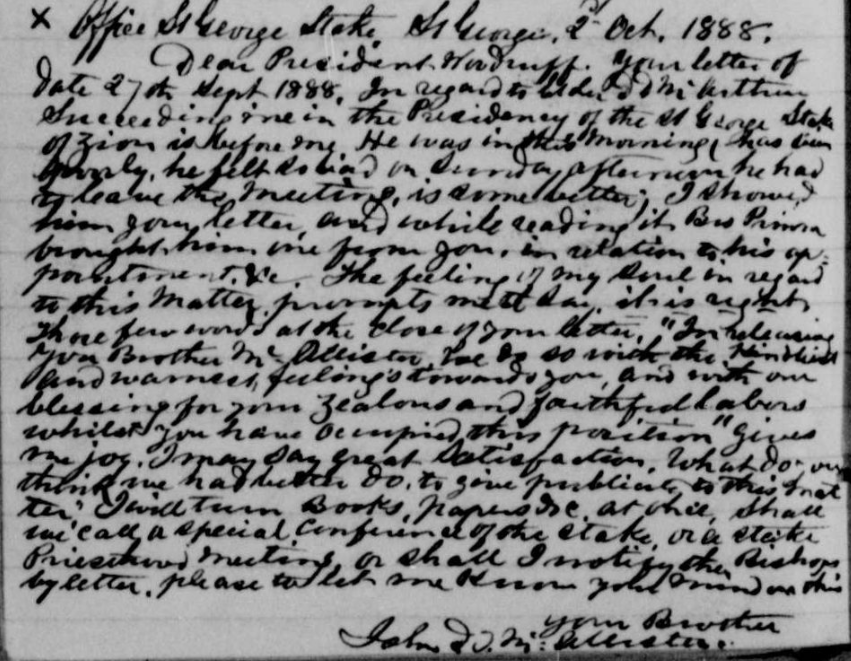 x Office St George Stake, St George, 2d Oct. 1888.
Dear President Woodruff. Your letter of
date 27th Sept 1888, In regard to Elder D D McArthur
Succeeding me in the Presidency of the St George Stake
of Zion is before me, He was in this morning, has been
poorly, he felt so bad on Sunday afternoon he had
to leave the meeting, is some better; I showed
him your letter, and while reading it Bro
brought him one from you, in relation to his ap-
pointment, &c. The feeling of my Soul in regard
to this matter, prompts me to say, it is right,
Those few words at the close of your letter, "In releasing
you Brother McAllister, we do so with the kindliest
and warmest, feelings towards you, and with our
blessing for your zealous and faithful labors
whilst you have occupied this position" gives
me joy. I may say great Satisfaction. What do you
think we had better do, to give publicity to this mat
ter, I will turn Books, papers &c, at once, Shall
we call a special Conference of the Stake, or a stake
Priesthood meeting, or shall I notify the Bishops
by letter, please to let me know your mind on this
Your Brother
John D. T. McAllister.